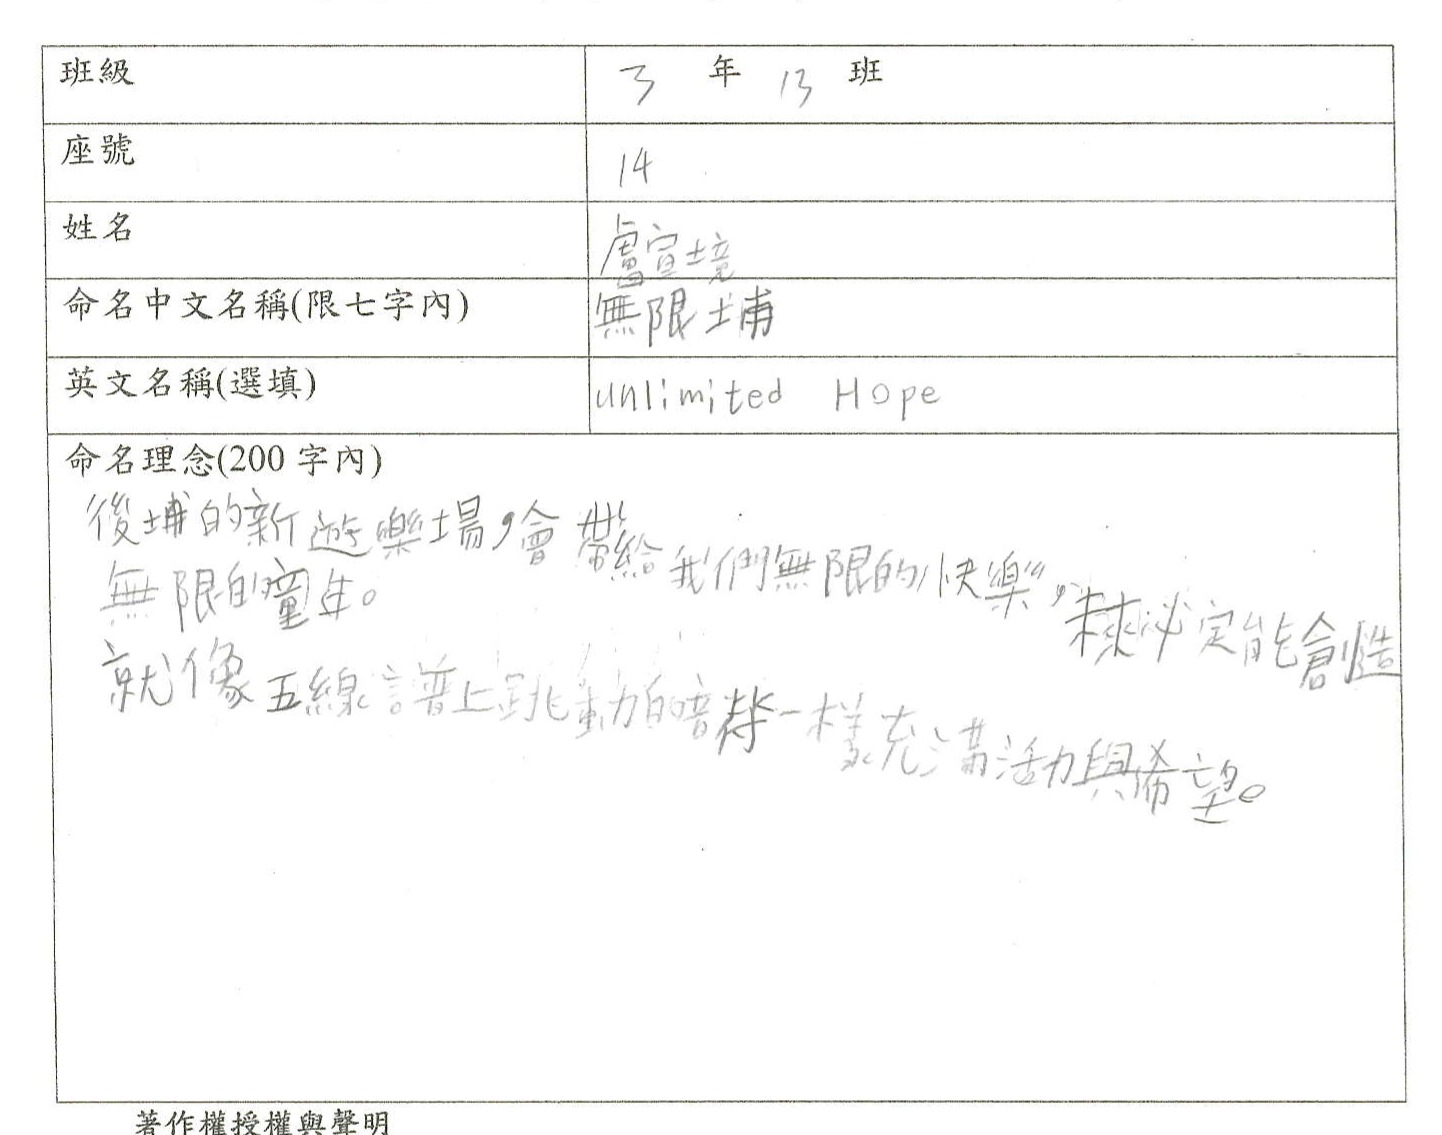 班級 3 年 13 班
座號 14
姓名 盧宣境
命名中文名稱(限七字內) 無限埔
英文名稱(選填) unlimited Hope
命名理念(200 字內)
後埔的新遊樂場，會帶給我們無限的快樂，未來必定能創造
無限的童年。
就像五線譜上跳動的音符一樣充滿活力與希望。
著作權授權與聲明